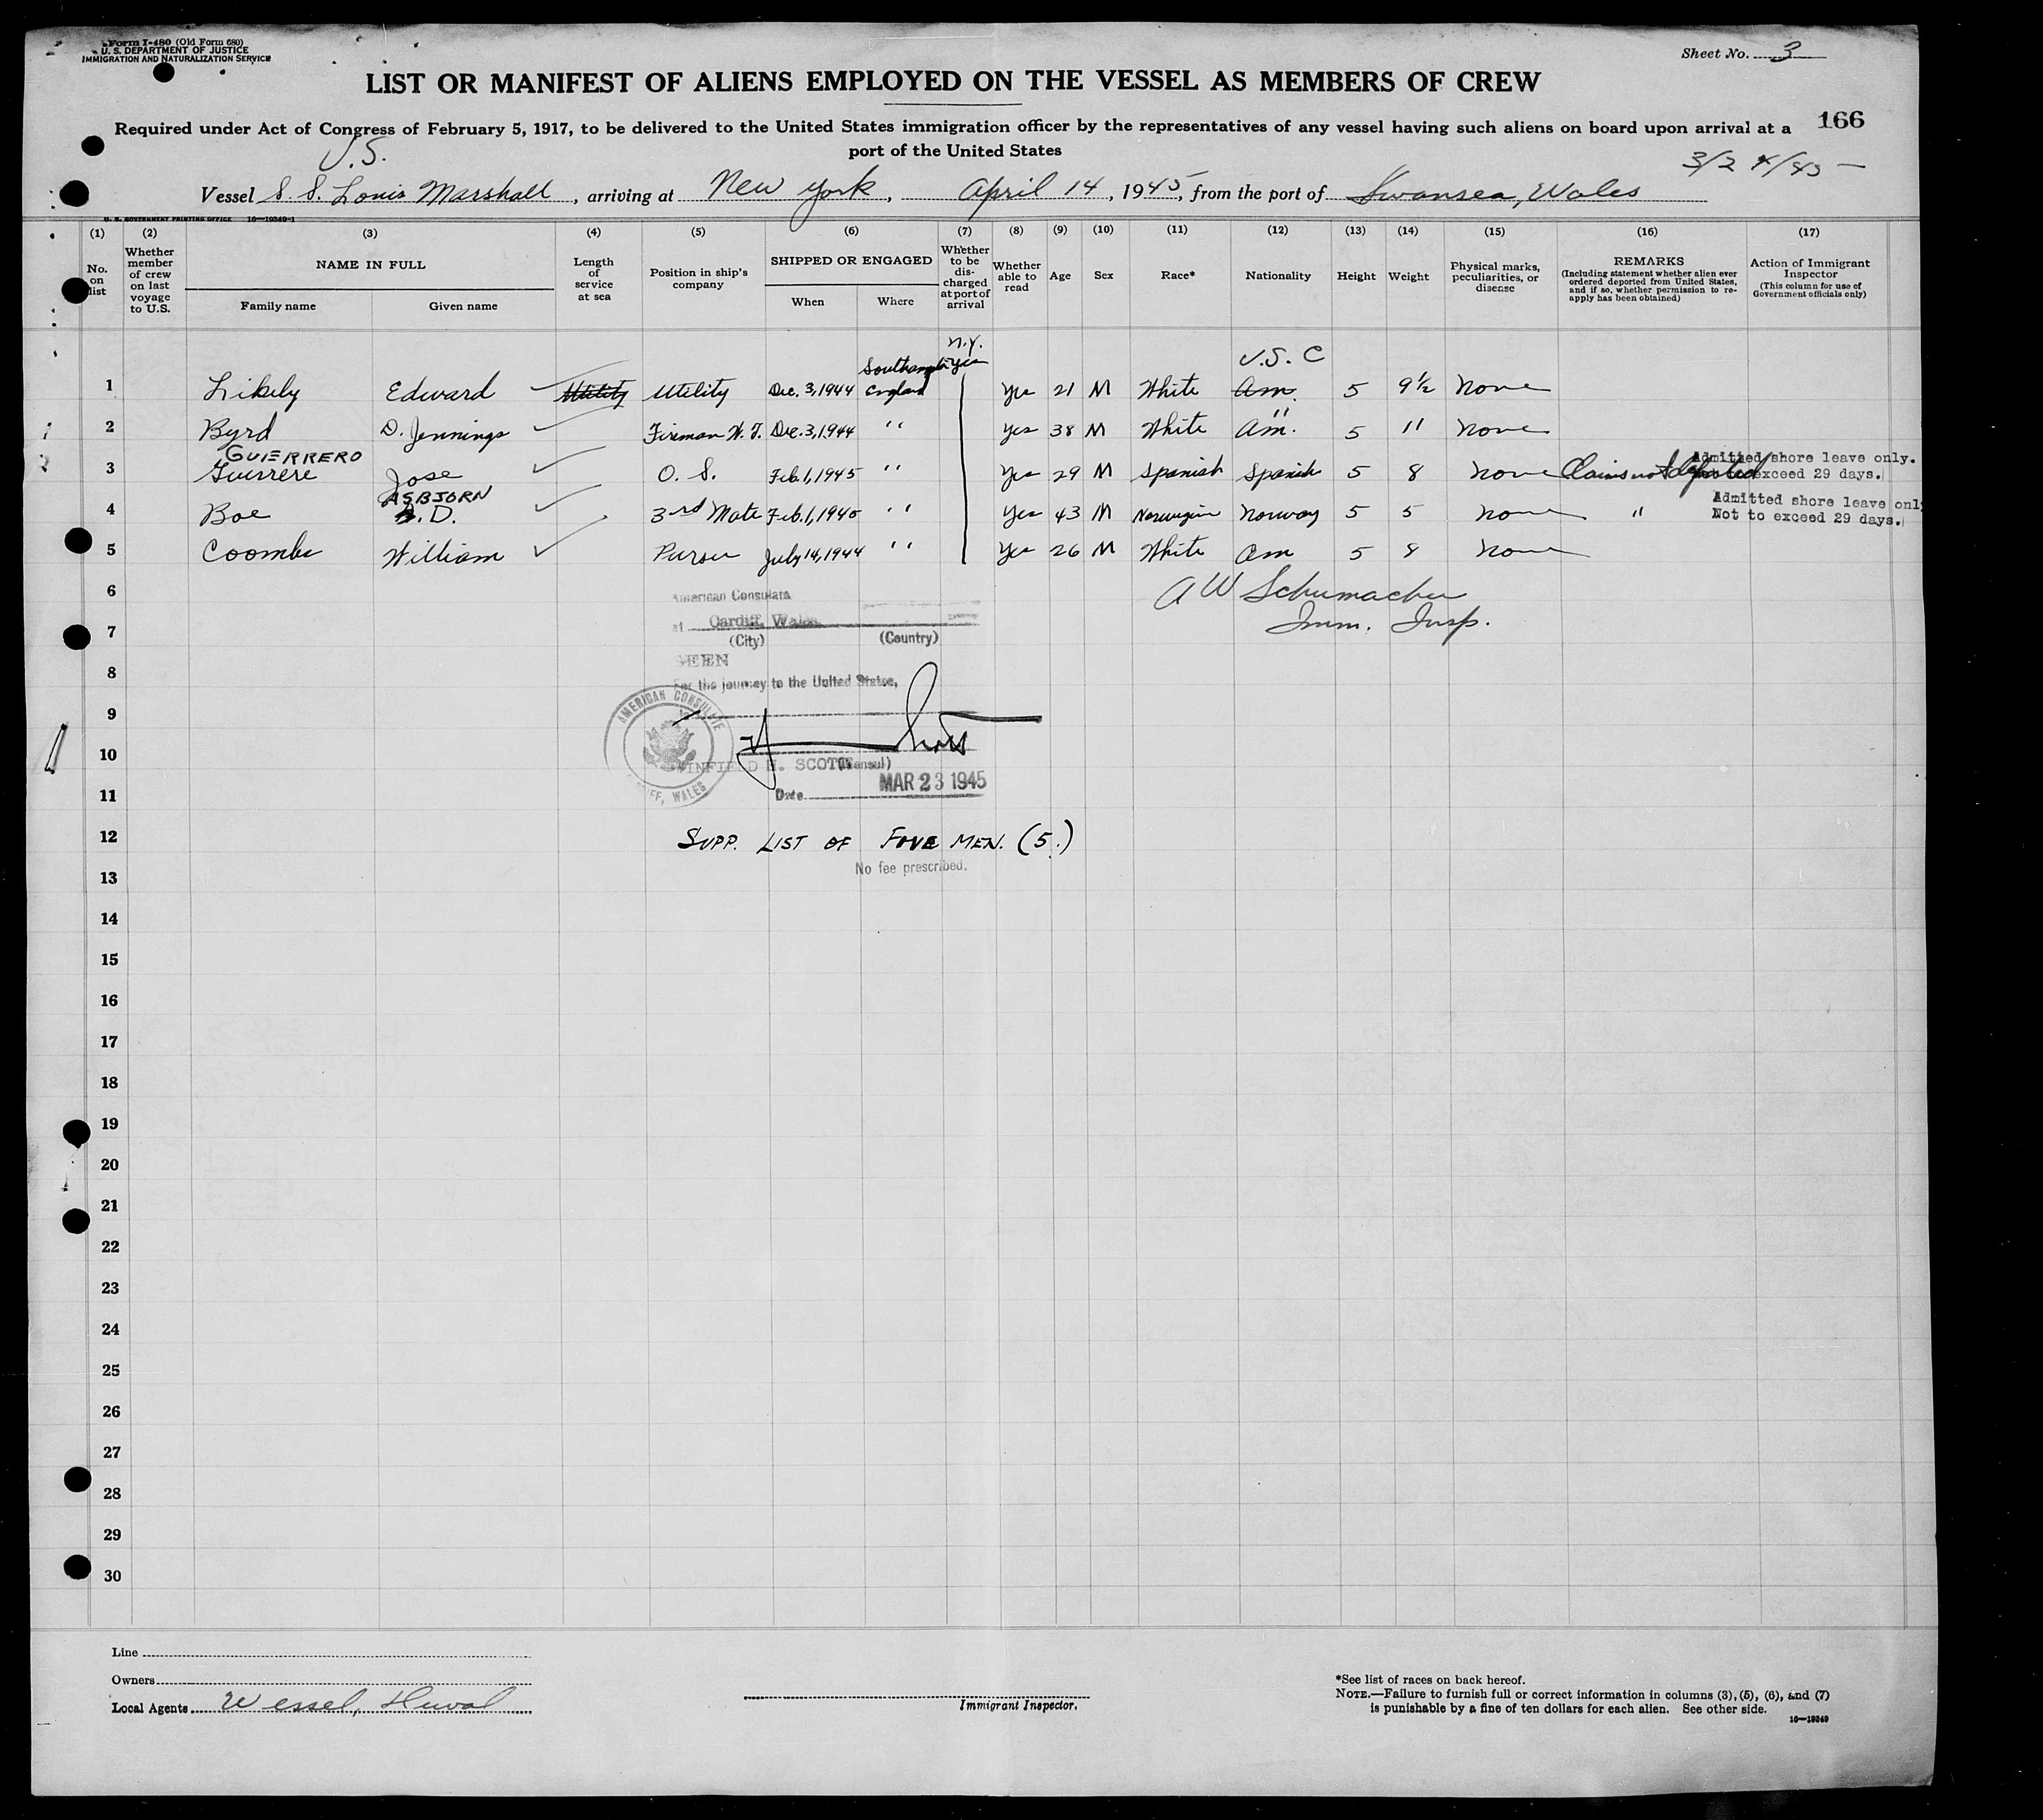 Form I-480 (Old Form 680)
U. S. DEPARTMENT OF JUSTICE
IMMIGRATION AND NATURALIZATION SERVICE
Sheet No. 3
LIST OR MANIFEST OF ALIENS EMPLOYED ON THE VESSEL AS MEMBERS OF CREW
166
Required under Act of Congress of February 5, 1917, to be delivered to the United States immigration officer by the representatives of any vessel having such aliens on board upon arrival at a
port of the United States
U.S.
Vessel S. S. Louis Marshall, arriving at New York, April 14, 1945, from the port of Swansea, Wales
U. S. GOVERNMENT PRINTING OFFICE 16—19349-1
(1) (2) (3) (4) (5) (6) (7) (8) (9) (10) (11) (12) (13) (14) (15) (16) (17)
No. on list
Whether member of crew on last voyage to U.S.
NAME IN FULL
Family name
Given name
Length of service at sea
Position in ship's company
SHIPPED OR ENGAGED
When
Where
Whether to be discharged at port of arrival
Whether able to read
Age
Sex
Race*
Nationality
Height
Weight
Physical marks, peculiarities, or disease
REMARKS
(Including statement whether alien ever ordered deported from United States, and if so, whether permission to re-apply has been obtained)
Action of Immigrant Inspector
(This column for use of Government officials only)
N.Y.
U.S. C
1 Likely Edward Utility Utility Dec. 3, 1944 Southampton England Yes Yes 21 M White Am. 5 9½ None
2 Byrd D. Jennings Fireman W. T. Dec. 3, 1944 " Yes 38 M White Am. " 5 11 None
GUIERRERO
3 Guerrere Jose O. S. Feb. 1, 1945 " Yes 29 M Spanish Spanish 5 8 None Claims not deported
Admitted shore leave only.
Not to exceed 29 days.
ASBJORN
4 Boe D. 3rd Mate Feb. 1, 1945 " Yes 43 M Norwegian Norway 5 5 None "
Admitted shore leave only
Not to exceed 29 days.
5 Coombe William Purser July 14, 1944 " Yes 26 M White Am 5 8 None
6
A W Schumacher
7
Imm. Insp.
American Consulate
at Cardiff, Wales
(City) (Country)
8
SEEN
For the journey to the United States,
9
AMERICAN CONSULATE
10
WINFIELD H. SCOTT
(Consul)
11
Date MAR 23 1945
12
SUPP. LIST OF FIVE MEN. (5.)
13
No fee prescribed.
14
15
16
17
18
19
20
21
22
23
24
25
26
27
28
29
30
Line
Owners
Local Agents Wessel, Duval
Immigrant Inspector.
*See list of races on back hereof.
NOTE.—Failure to furnish full or correct information in columns (3), (5), (6), and (7)
is punishable by a fine of ten dollars for each alien. See other side.
16—19349